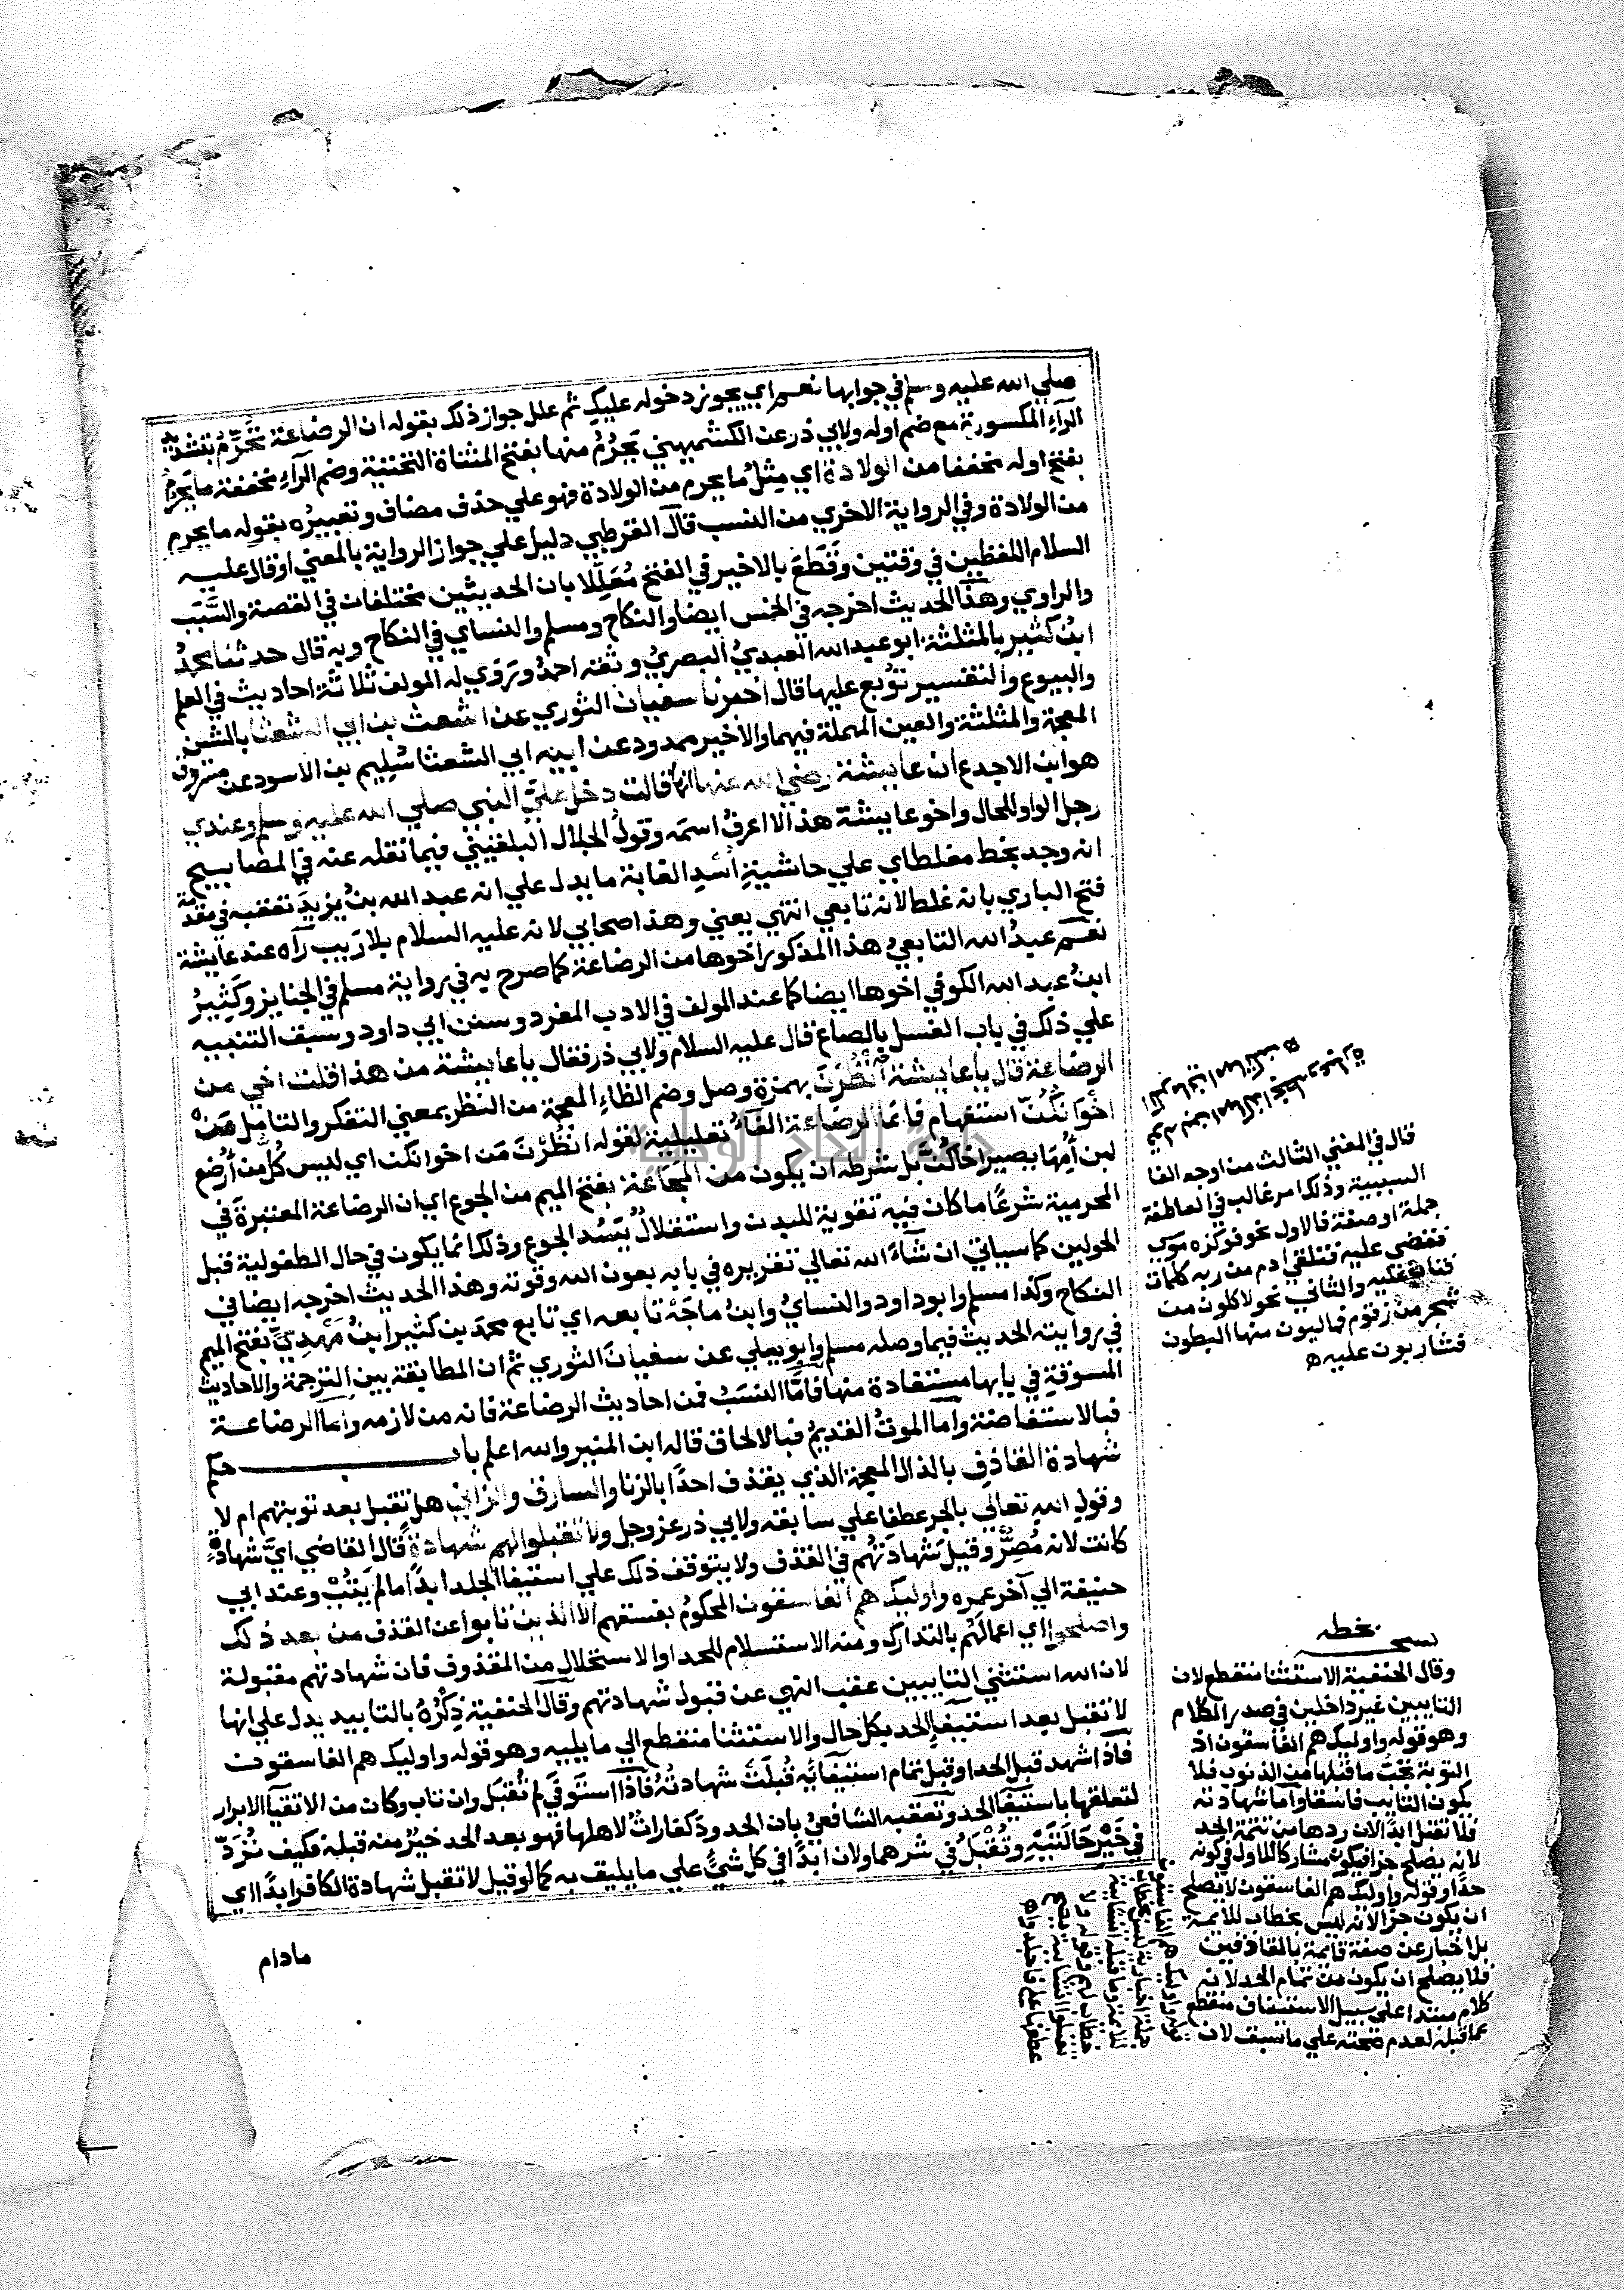 صلي الله عليه وسلم في جوابها نعم اي يجوز دخوله عليك ثم علل جواز ذلك بقوله ان الرضاعة تُحَرِّمُ بتشديد
الرّاءِ المكسورة مع ضم اوله ولابي ذر عن الكشميهني يَحْرُمُ منها بفتح المثناة التحتية وضم الرّاءِ مخففة ما يَحْرُمُ
بفتح اوله مخففا من الولادة اي مِثلُ ما يحرم من الولادة فهو علي حذف مضاف وتعبيرُه بقوله ما يحرم
من الولادة وفي الرواية الاخري من النسب قال القرطبي دليل علي جواز الرواية بالمعني او قال عليه
السلام اللفظين في وقتين وقَطَعَ بالاخير في الفتح مُعَلِّلا بان الحديثين مختلفان في القصة والسَّبَب
والراوي وهذا الحديث اخرجه في الخمس ايضا والنكاح ومسلم والنساي في النكاح وبه قال حدثنا محمدُ
ابنُ كثير بالمثلثة ابو عبد الله العبديُّ البصريُّ وثقه احمدُ ورَوَي له المولف ثلاثة احاديث في العلم
والبيوع والتفسير تُوبع عليها قال اخبرنا سفيان الثوري عن اشعث بن ابي الشعثا بالشين
المعجمة والمثلثة والعين المهملة فيهما والاخير ممدود عن ابيه ابي الشعثا سُليم بن الاسود عن مسروق
هو ابن الاجدع ان عايشة رضي الله عنها انها قالت دخل عليَّ النبي صلي الله عليه وسلم وعندي
رجل الواو للحال واخو عايشة هذا لا اعرفُ اسمَه وقولُ الجلال البلقيني فيما نقله عنه في المصابيح
انه وجد بخط مغلطاي علي حاشيةِ اُسْدِ الغابة ما يدل علي انه عبد الله بنُ يزيدَ تعقبه في مقدمة
فتح الباري بانه غلط لانه تابعي انتهي يعني وهذا صحابي لانه عليه السلام بلا ريب رآه عند عايشة
نعم عبدُ الله التابعيُ هذا المذكور اخوها من الرضاعة كما صرح به في رواية مسلم في الجنايز وكَثِيرُ
ابنُ عبد الله الكوفي اخوها ايضا كما عند المولف في الادب المفرد وسنن ابي داود وسبق التنبيه
علي ذلك في باب الغسل بالصاع قال عليه السلام ولابي ذر فقال يا عايشة من هذا قلت اخي من
الرضاعة قال يا عايشة اُنْظُرْنَ بهمزة وصل وضم الظاءِ المعجمة من النظر بمعني التفكر والتامل مَنْ
اخْوَانُكُنّ استفهام فانما الرضاعة الفآءُ تعليلية لقوله انظُرْنَ مَن اخوانكن اي ليس كُلّ من أُرضع
لبن أُمِّها يصير اخاكُنّ بل شرطه ان يكون من المجَاعَة بفتح الميم من الجوع اي ان الرضاعة المعتبرةَ في
المحرمية شرعًا ما كان فيه تقوية للبدن واستقلالُ بِسَدّ الجوع وذلك انما يكون في حال الطفولية قبل
الحولين كما سياتي ان شآءَ الله تعالي تقريره في بابه بعون الله وقوته وهذا الحديث اخرجه ايضا في
النكاح وكذا مسلم وابو داود والنسايُ وابنُ ماجَهْ تابعه اي تابع محمد بن كثير ابنُ مَهْدِيّ بفتح الميم
في روايته الحديث فيما وصله مسلم وابو يعلي عن سفيان الثوري ثم ان المطابقة بين الترجمة والاحاديث
المسوقةِ في بابها مستفادة منها فامّا النسَبُ فمن احاديث الرضاعة فانه من لازمه واما الرضاعة
فبالاستفاضة واما الموتُ القديمُ فبالالحاق قاله ابن المنير والله اعلم باب حكم
شهادة القاذفِ بالذال المعجمة الذي يقذف احدًا بالزنا والسارق والزاني هل تقبل بعد توبتهم ام لا
وقولِ الله تعالي بالجر عطفا علي سابقه ولابي ذر عز وجل ولا تقبلوا لهم شهادةً قال القاضي ايَّ شهادة
كانت لانه مُصِرٌّ وقيل شهادتُهُم في القذف ولا يتوقف ذلك علي استيفا الجلد ابدًا ما لم يَتُبْ وعند ابي
حنيفة الي آخر عمره واوليك هم الفاسقون المحكومُ بفسقهم الا الذين تابوا عن القذف من بعد ذلك
واصلحوا اي اعمالَهُم بالتدارك ومنه الاستسلام للحد او الاستحلال من المقذوف فان شهادتهم مقبولة
لان الله استثني التايبين عقب النهي عن قبول شهادتهم وقال الحنفية ذِكْرُهُ بالتابيد يدل علي انها
لا تقبل بعد استيفا الحد بكل حال والاستثنا منقطع الي ما يليه وهو قوله واوليك هم الفاسقون
فاذا شهد قبل الحد او قبل تمام استيفَائِه قُبِلَتْ شهادتُه فاذا استوفَي لم تُقبَل وان تاب وكان من الاتقيا الابرار
لتعلقها باستيفا الحد وتعقبه الشافعيُ بان الحدود كفاراتٌ لاهلها فهو بعد الحد خيرٌ منه قبله فكيف تُرَدّ
في خَيْرِ حَالَتَيْهِ وتُقْبَلُ في شرهما ولان ابدًا في كل شيْءٍ علي ما يليق به كما لو قيل لا تقبل شهادة الكافر ابدًا اي
مادام
قال في المغني الثالث من اوجه الفا
السببية وذلك امر غالب في العاطفة
جملة او صفة فالاول نحو فوكزه موسي
فقضي عليه فتلقي ادم من ربه كلمات
فتاب عليه والثاني نحو لاكلون من
شجر من زقوم فماليون منها البطون
فشاربون عليه ه
بخطه
وقال الحنفية الاستثنا منقطع لان
التايبين غير داخلين في صدر الكلام
وهو قوله واوليك هم الفاسقون اذ
التوبة تجب ما قبلها من الذنوب فلا
يكون التايب فاسقا واما شهادته
فلا تقبل ابدًا لان ردها من تتمة الحد
لانه يصلح جزا فيكون مشاركا للاول في كونه
حدًا وقوله واوليك هم الفاسقون لا يصلح
ان يكون جزا لانه ليس بخطاب للأئمة
بل اخبار عن صفة قائمة بالقاذفين
فلا يصلح ان يكون من تمام الحد لانه
كلام مبتدا علي سبيل الاستيناف منقطع
عما قبله لعدم صحته علي ما سبق لان